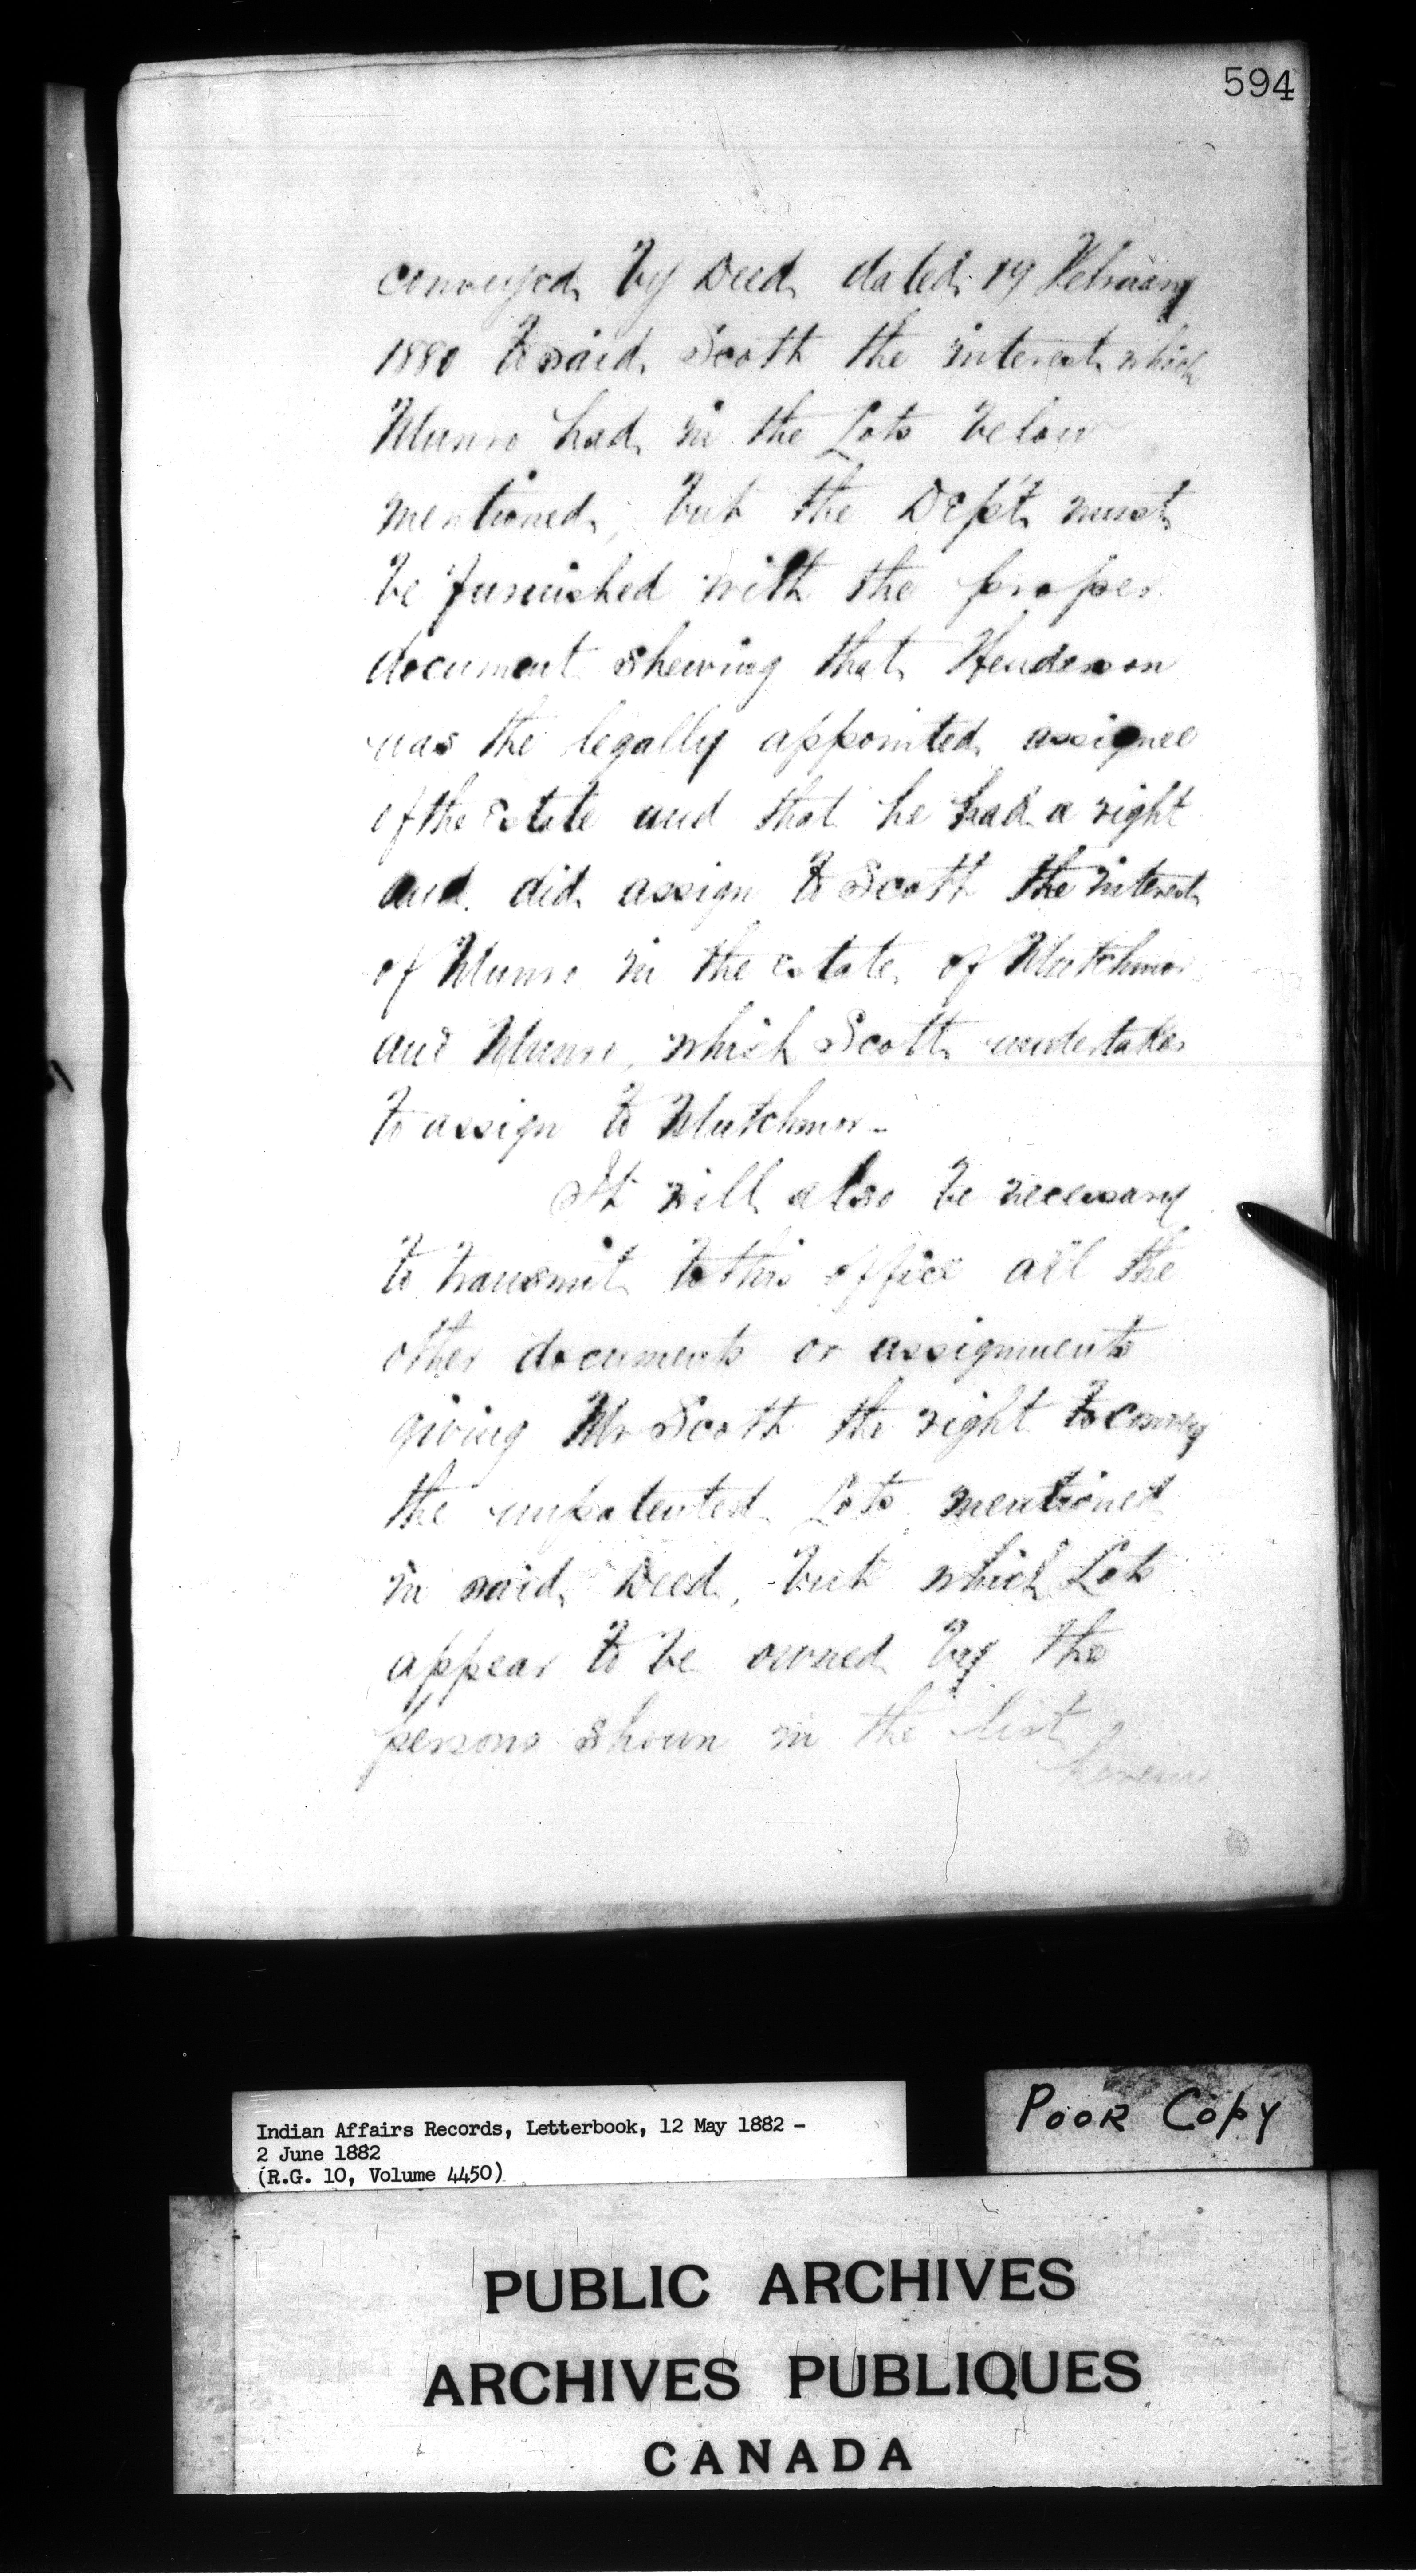 594
conveyed by Deed dated 19 February
1880 to said Scott the interest which
Munro had in the Lots below
mentioned, but the Dep't must
be furnished with the proper
document shewing that Henderson
was the legally appointed assignee
of the Estate and that he had a right
and did assign to Scott the interest
of Munro in the Estate of Mutchmor
and Munro, which Scott undertakes
to assign to Mutchmor -
It will also be necessary
to transmit to this office all the
other documents or assignments
giving Mr Scott the right to convey
the unpatented Lots mentioned
in said Deed, but which Lots
appear to be owned by the
persons shown in the list
Indian Affairs Records, Letterbook, 12 May 1882 -
2 June 1882
(R.G. 10, Volume 4450)
POOR COPY
PUBLIC ARCHIVES
ARCHIVES PUBLIQUES
CANADA